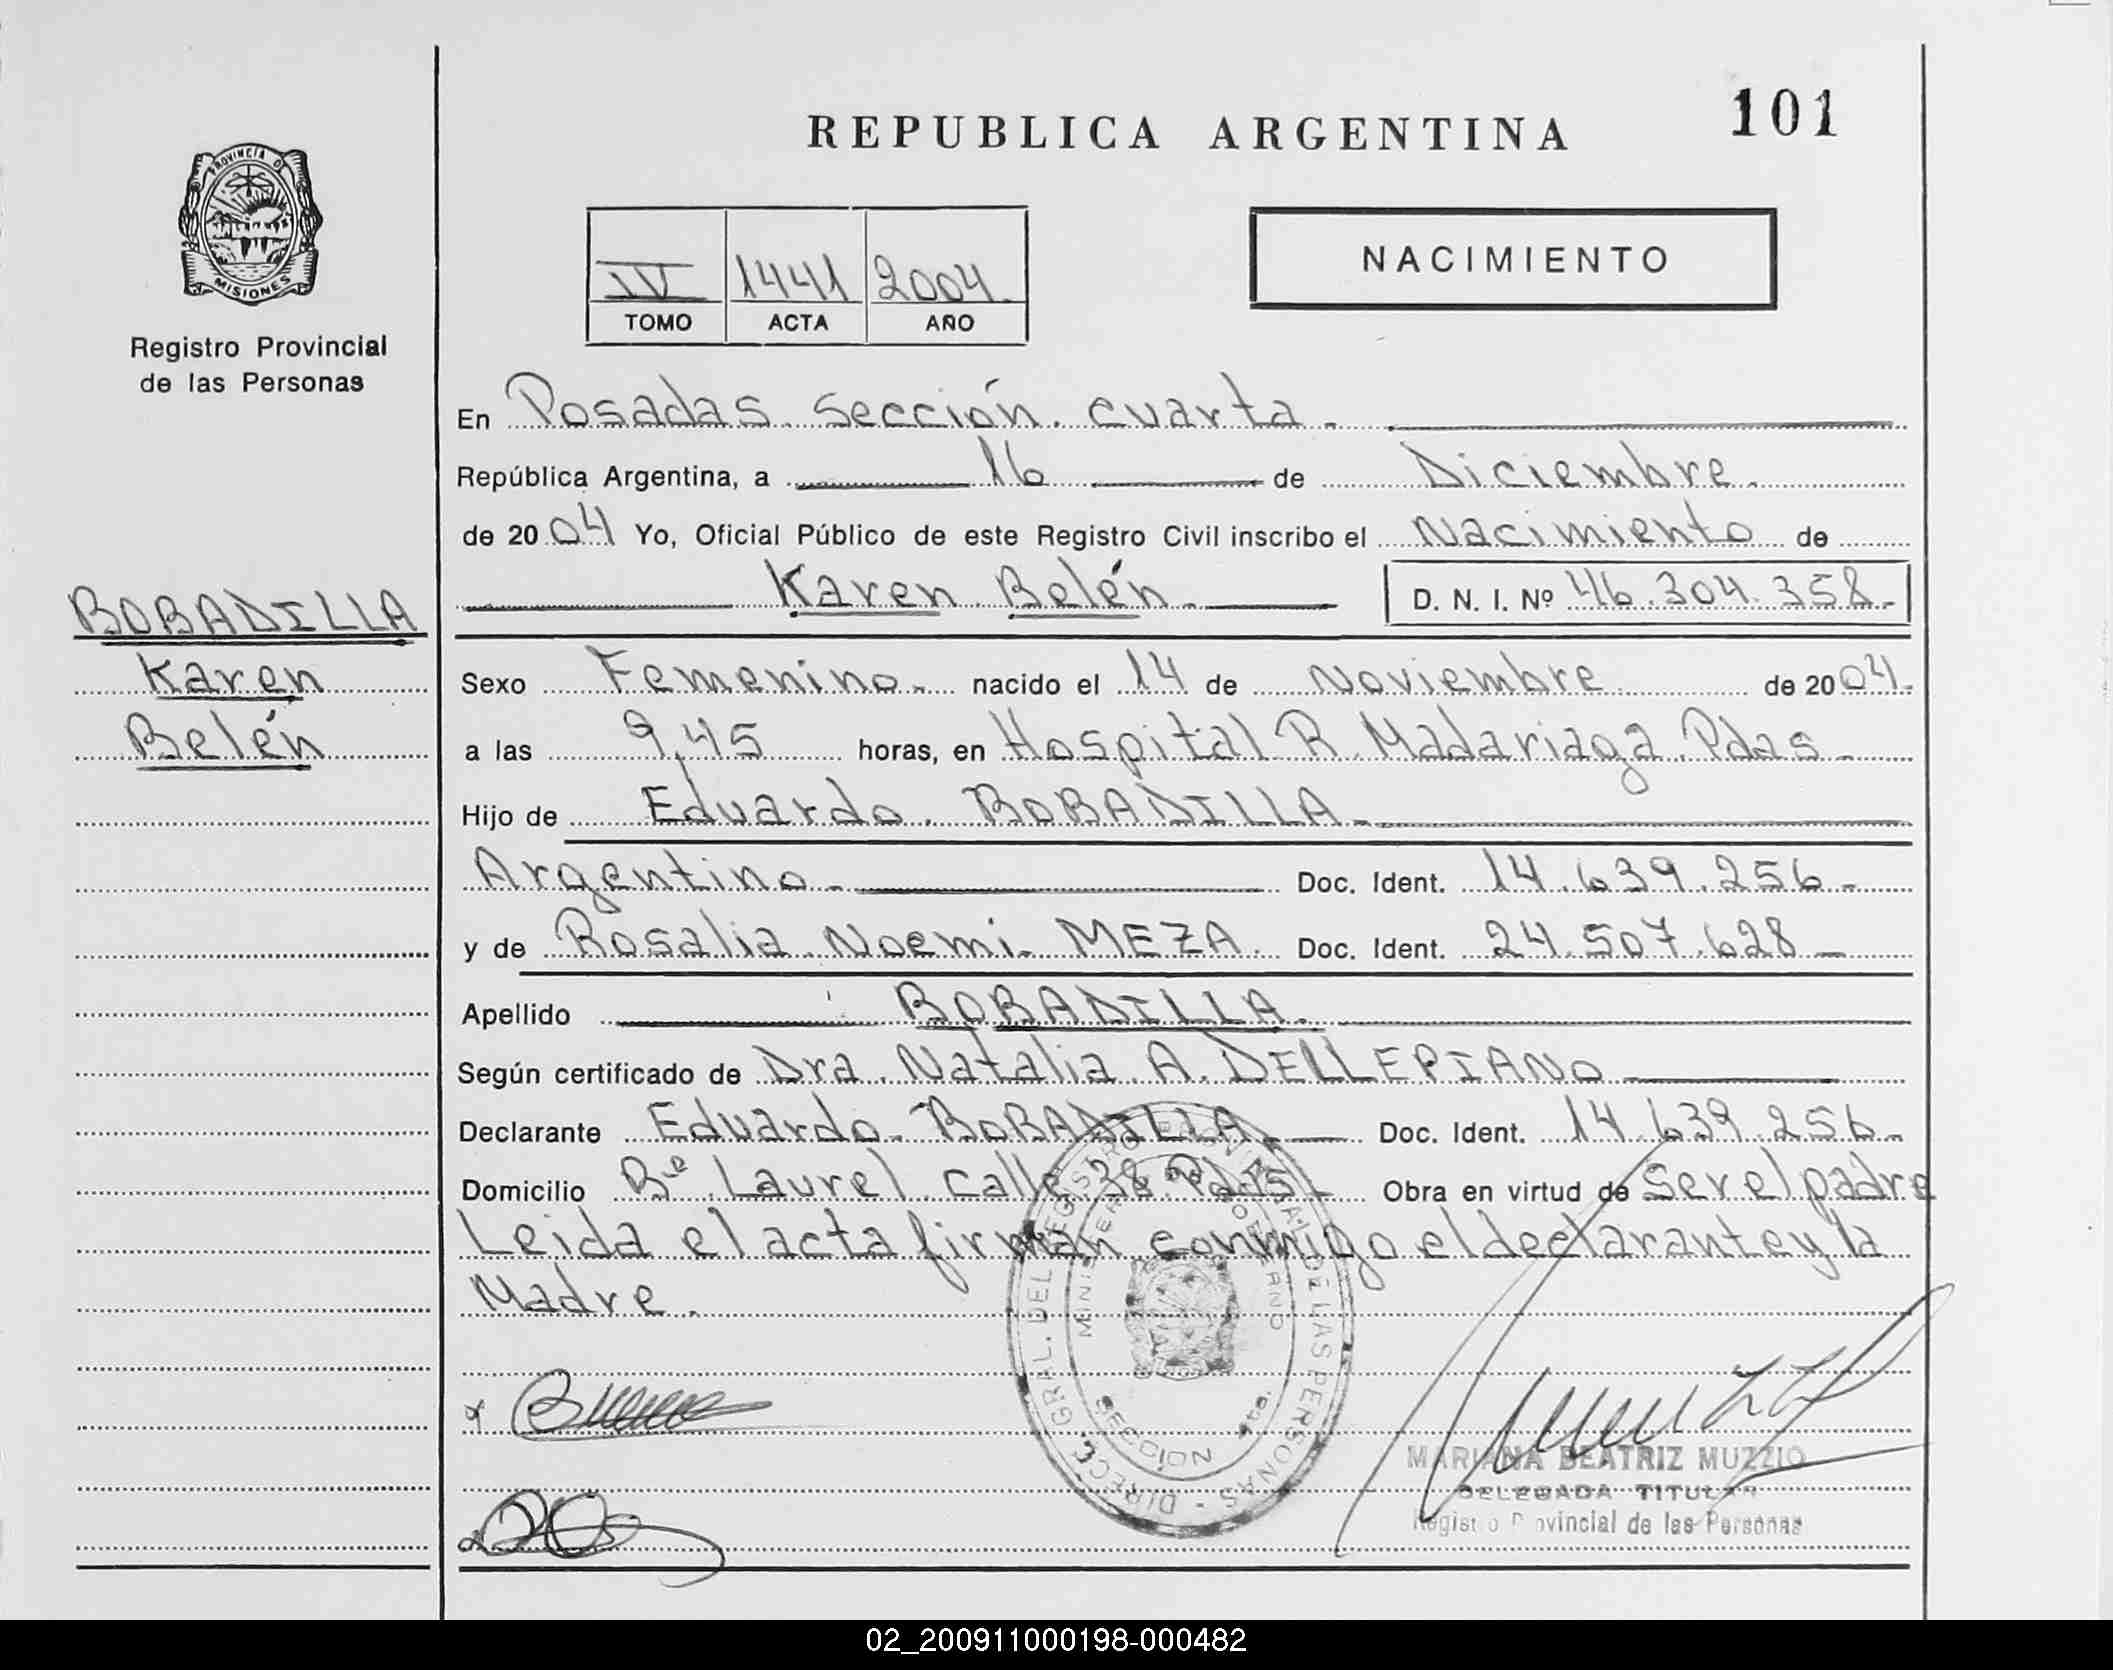 101
REPUBLICA ARGENTINA
PROVINCIA DE
MISIONES
Registro Provincial
de las Personas
IV 1441 2004
TOMO ACTA AÑO
NACIMIENTO
En Posadas sección cuarta
República Argentina, a 16 de Diciembre
de 2004 Yo, Oficial Público de este Registro Civil inscribo el Nacimiento de
Karen Belén D. N. I. Nº 46.304.358
BOBADILLA
Karen
Belén
Sexo Femenino nacido el 14 de Noviembre de 2004
a las 9,45 horas, en Hospital R. Madariaga Pdas
Hijo de Eduardo BOBADILLA
Argentino Doc. Ident. 14.639.256
y de Rosalia Noemi MEZA Doc. Ident. 24.507.628
Apellido BOBADILLA
Según certificado de Dra. Natalia A. DELLEPIANO
Declarante Eduardo BOBADILLA Doc. Ident. 14.639.256
Domicilio Bº Laurel calle 38 Pdas Obra en virtud de Ser el padre
Leida el acta firman conmigo el declarante y la
Madre.
DIRECC. GRAL. DEL REGISTRO PROVINCIAL DE LAS PERSONAS
MINISTERIO GOBIERNO
SECCIÓN 4ta.
MARIANA BEATRIZ MUZZIO
DELEGADA TITULAR
Registro Provincial de las Personas
02_200911000198-000482